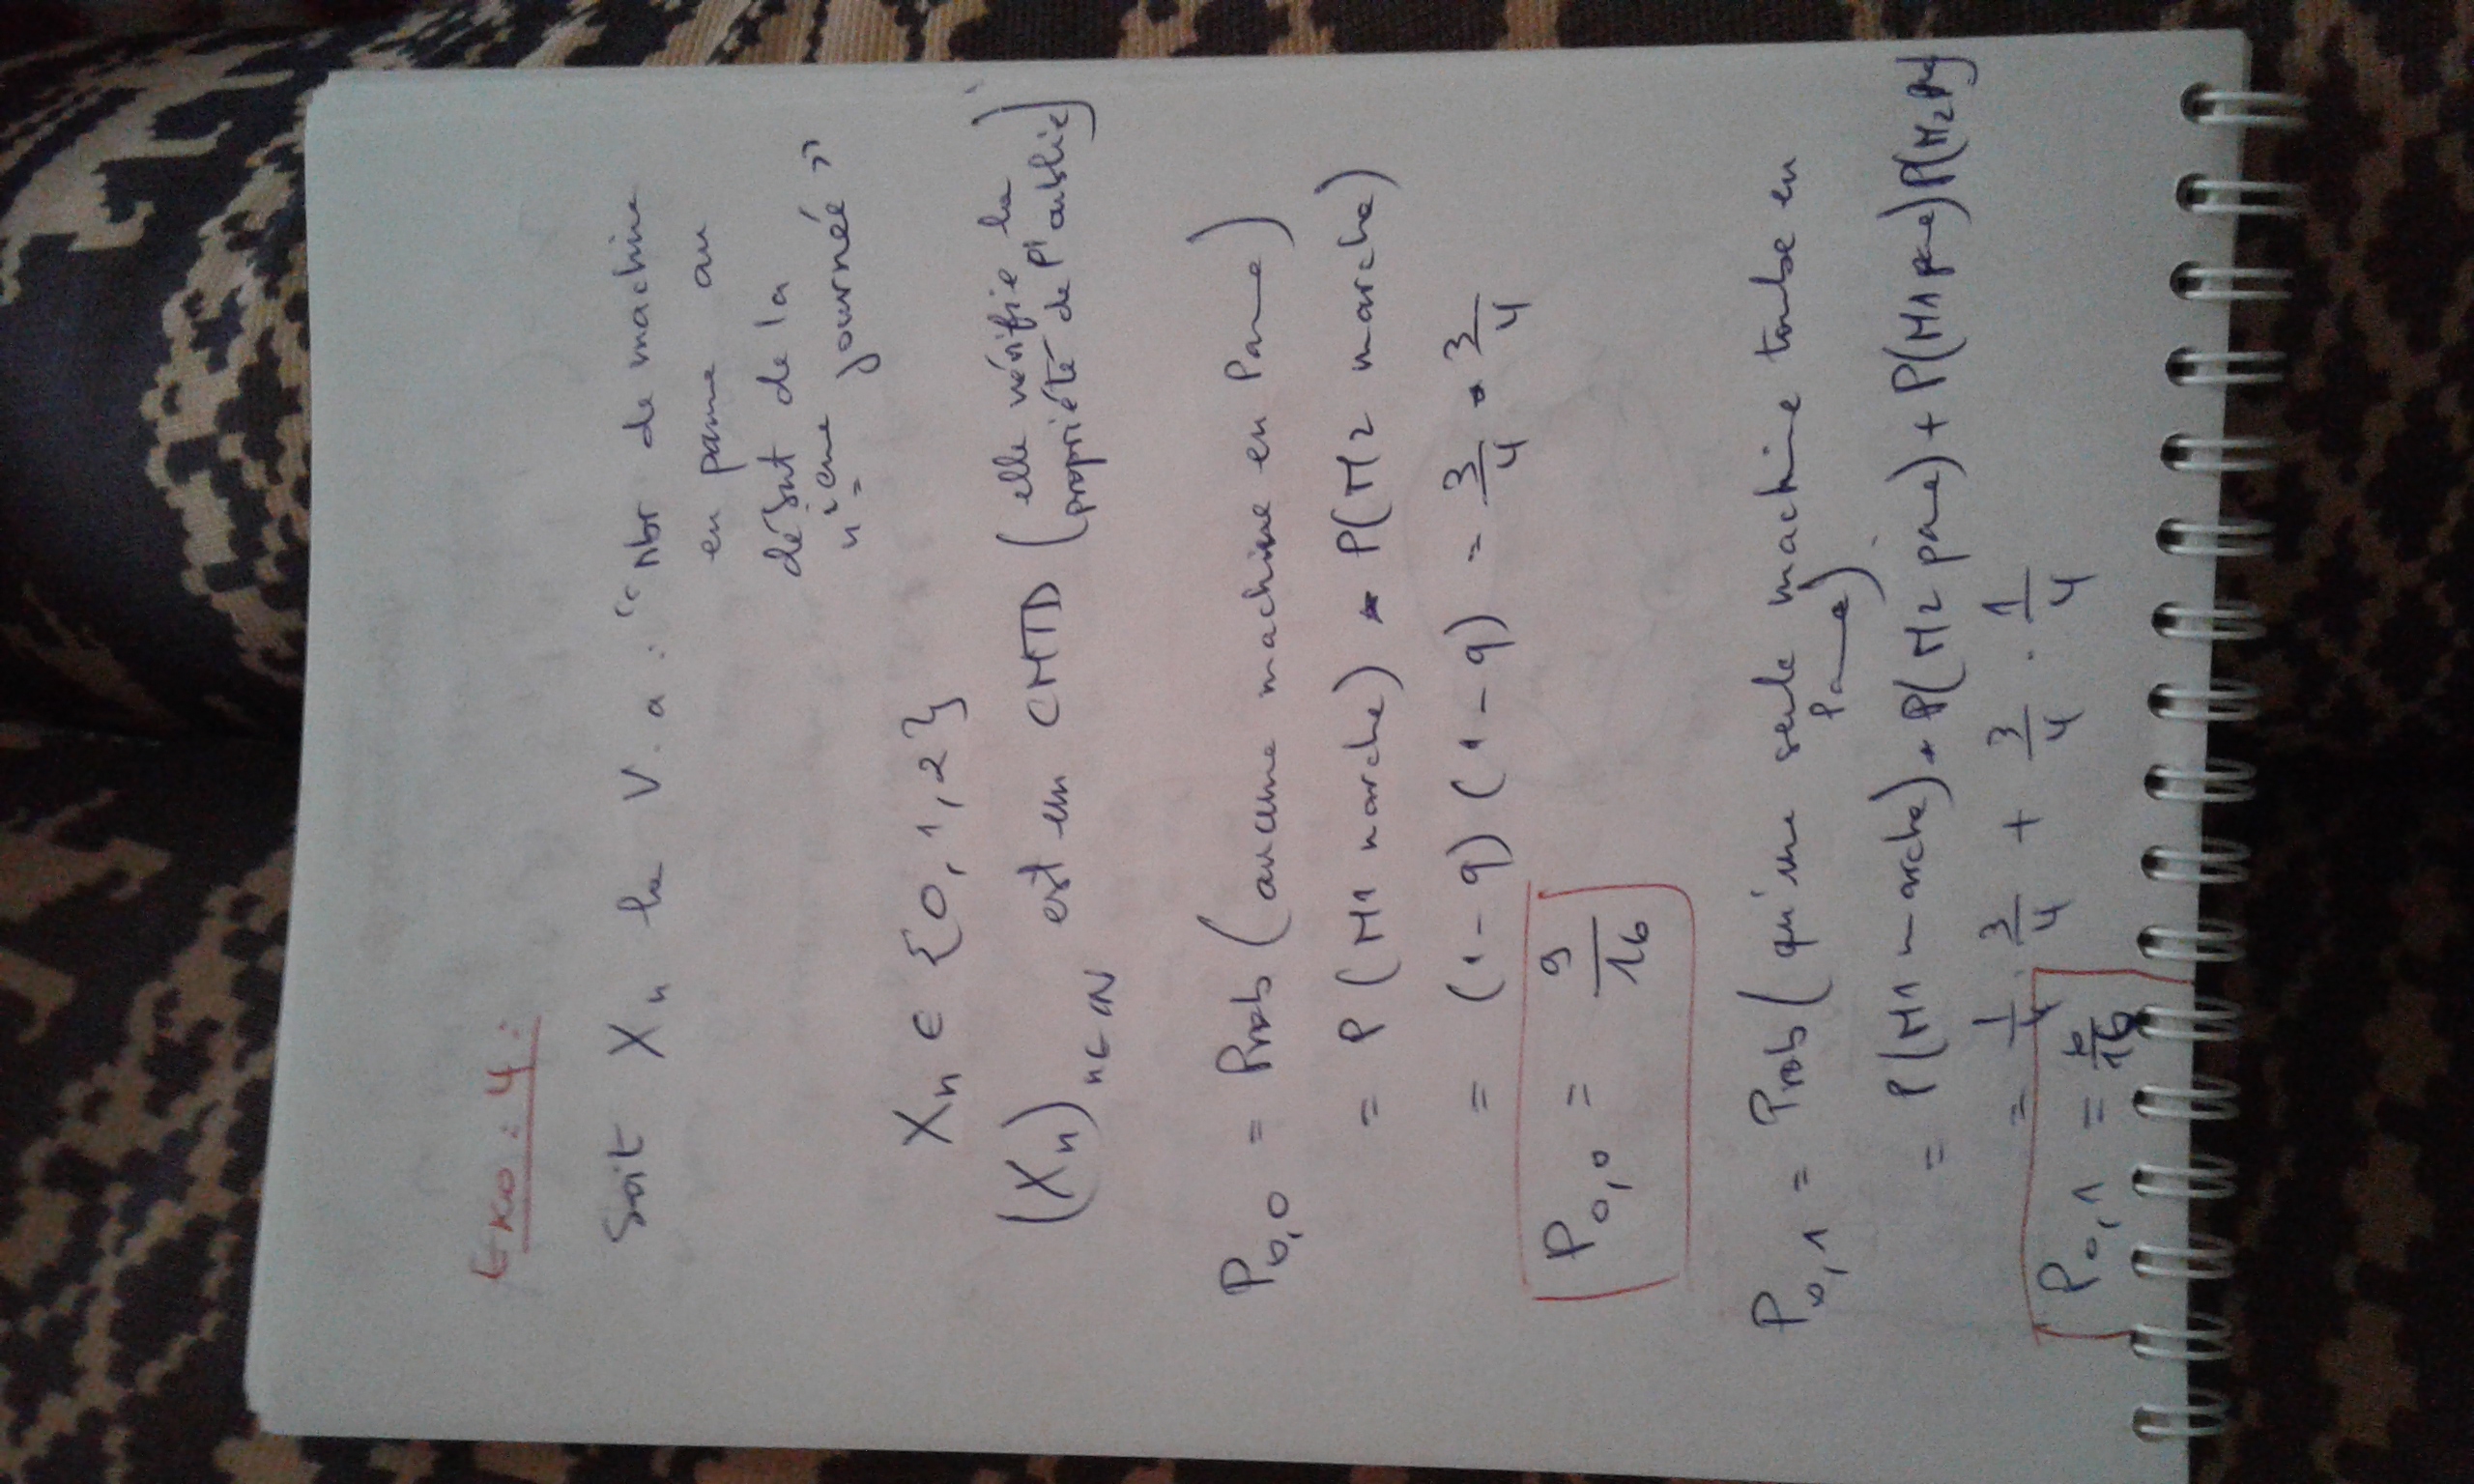 Exo : 4 :
Soit Xn la V.a : "Nbr de machine
en panne au
début de la
n ième journée"
Xn ∈ {0, 1, 2}
(Xn)n∈IN est un CMTD (elle vérifie la
propriété de l'oublie)
P0,0 = Prob (aucune machine en Panne)
= P (M1 marche) * P(M2 marche)
= (1-q) (1-q) = 3/4 * 3/4
P0,0 = 9/16
P0,1 = Prob (qu'une seule machine tombe en
Panne)
= P(M1 marche) * P(M2 panne) + P(M1 panne) P(M2
= 1/4 . 3/4 + 3/4 . 1/4
P0,1 = 6/16